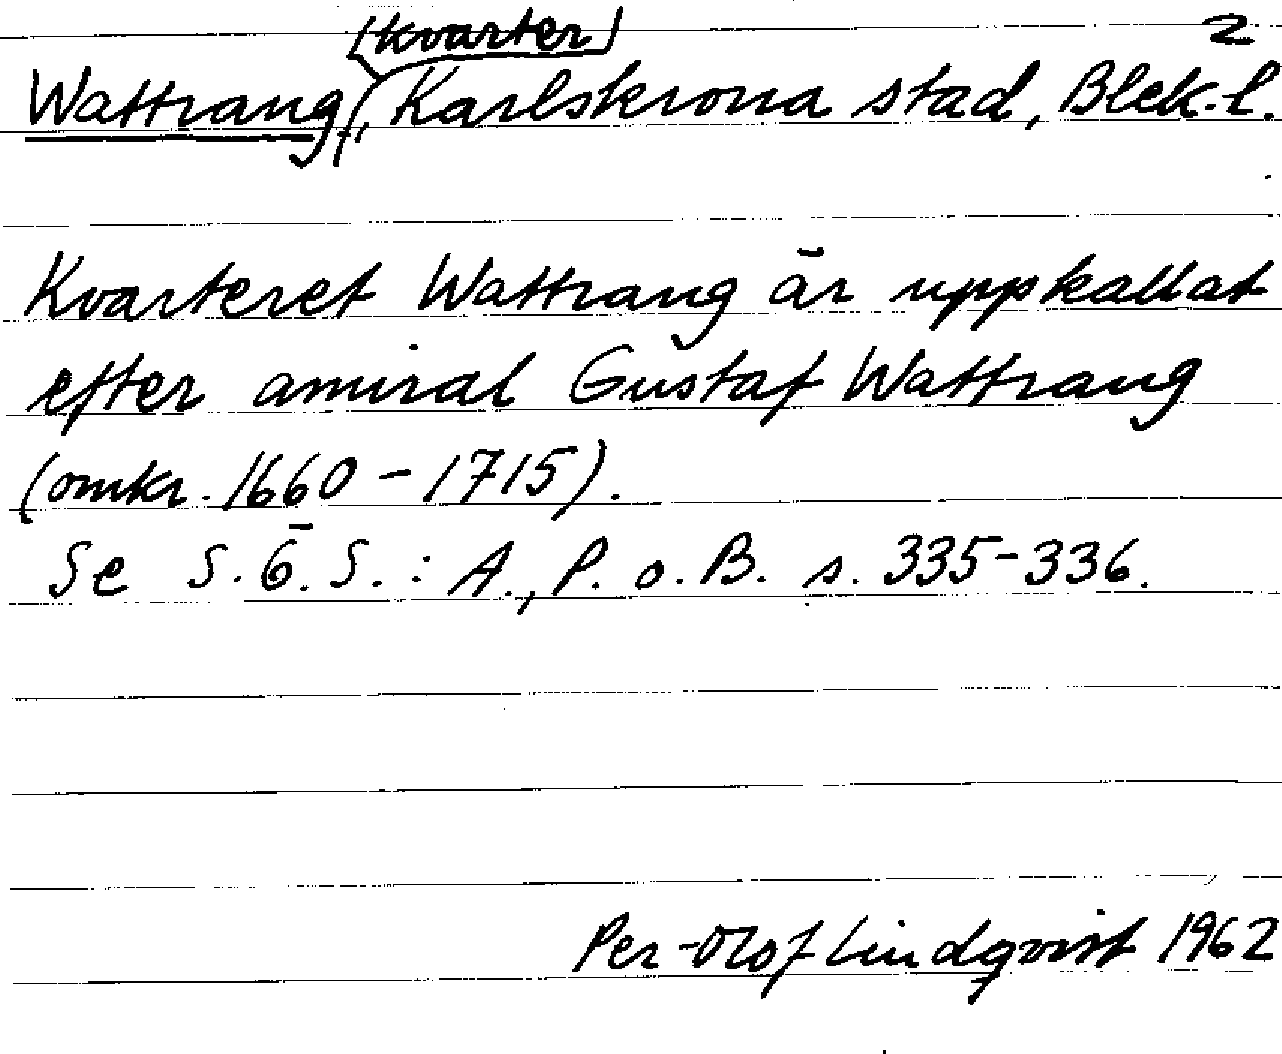 (kvarter) 2
Wattrang, Karlskrona stad, Blek. l.
Kvarteret Wattrang är uppkallat
efter amiral Gustaf Wattrang
(omkr. 1660 - 1715).
Se S. Ö. S. : A., P. o. B. s. 335-336.
Per-Olof Lindqvist 1962